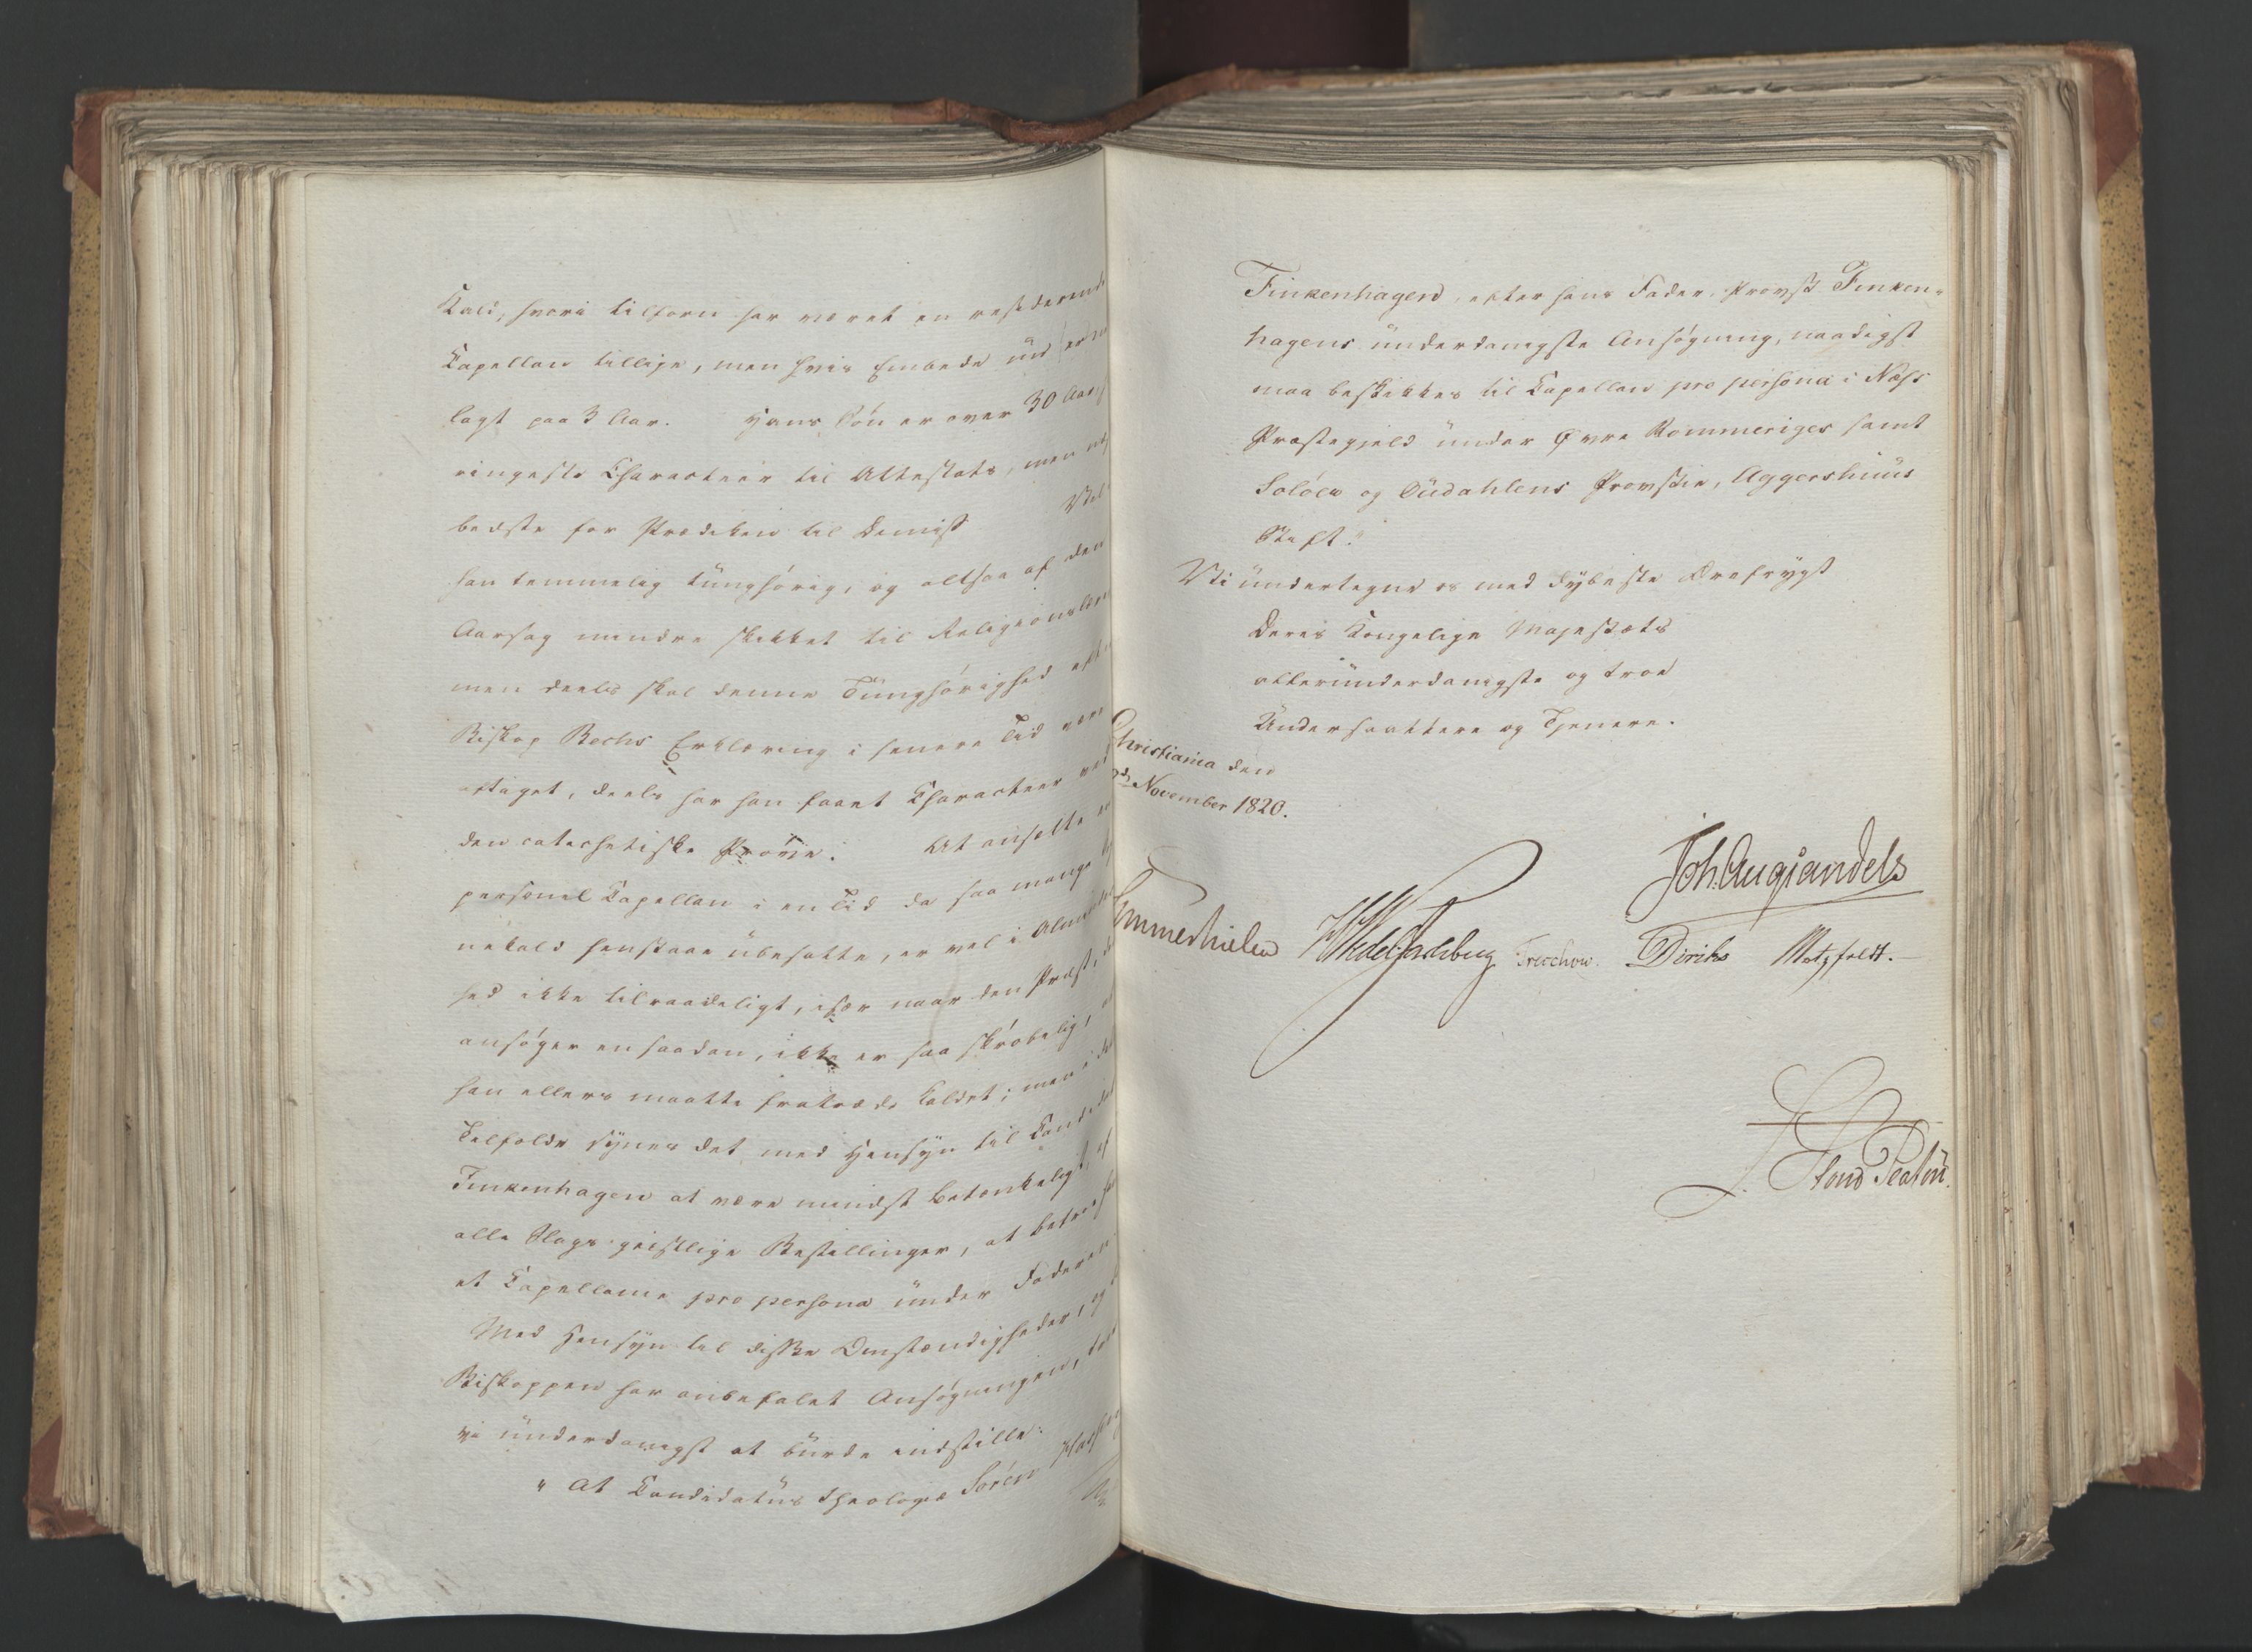 Kald, hvori tilforn har været en residerende
Kapellan tillige, men hvis Embede nu er ned
lagt paa 3 Aar. Hans Søn er over 30 Aar,
ringeste Characteer til Attestats, men
bedste for Prædiken til Dimiss Vel
han temmelig tunghørig, og altsaa af den
Aarsag mindre skikket til Religionslærer
men deels skal denne Tunghørighed efter
Biskop Bechs Erklæring i senere Tid være
aftaget, deels har han faaet Characteer ved
den catechetiske Prøve. At ansætte en
personel Kapellan i en Tid da saa mange
nekald henstaae übesatte, er vel i Almindelig
hed ikke tilraadeligt, især naar den Præst, der
ansøger en saadan, ikke er saa skrøbelig, at
han ellers maatte fratræde Kaldet; men i det
Tilfælde synes det med Hensyn til Candidat
Finkenhagen at være mindst betænkeligt, af
alle Slags geistlige Bestillinger, at betroe ham
et Kapellanie pro persona under Faderen.
Med Hensyn til disse Omstændigheder, og da
Biskoppen har anbefalet Ansøgningen, troe
vi underdanigst at burde indstille:
" At Candidatus theologiæ Søren
Finkenhagen, efter hans Fader, Provst Finken-
hagens underdanigste Ansøgning, naadigst
maa beskikkes til Kapellan pro persona i Næss
Præstegjeld under Øvre Rommeriges samt
Soløer og Oudahlens Provstie, Aggershuus
Stift."
Vi undertegne os med dybeste Ærefrygt
Deres Kongelige Majestæts
allerunderdanigste og troe
Undersaattere og Tjenere.
Christiania den
November 1820.
Joh. Aug. Sandels
Sommerhielm HWedelJarlsberg Treschow. Diriks Motzfeldt.